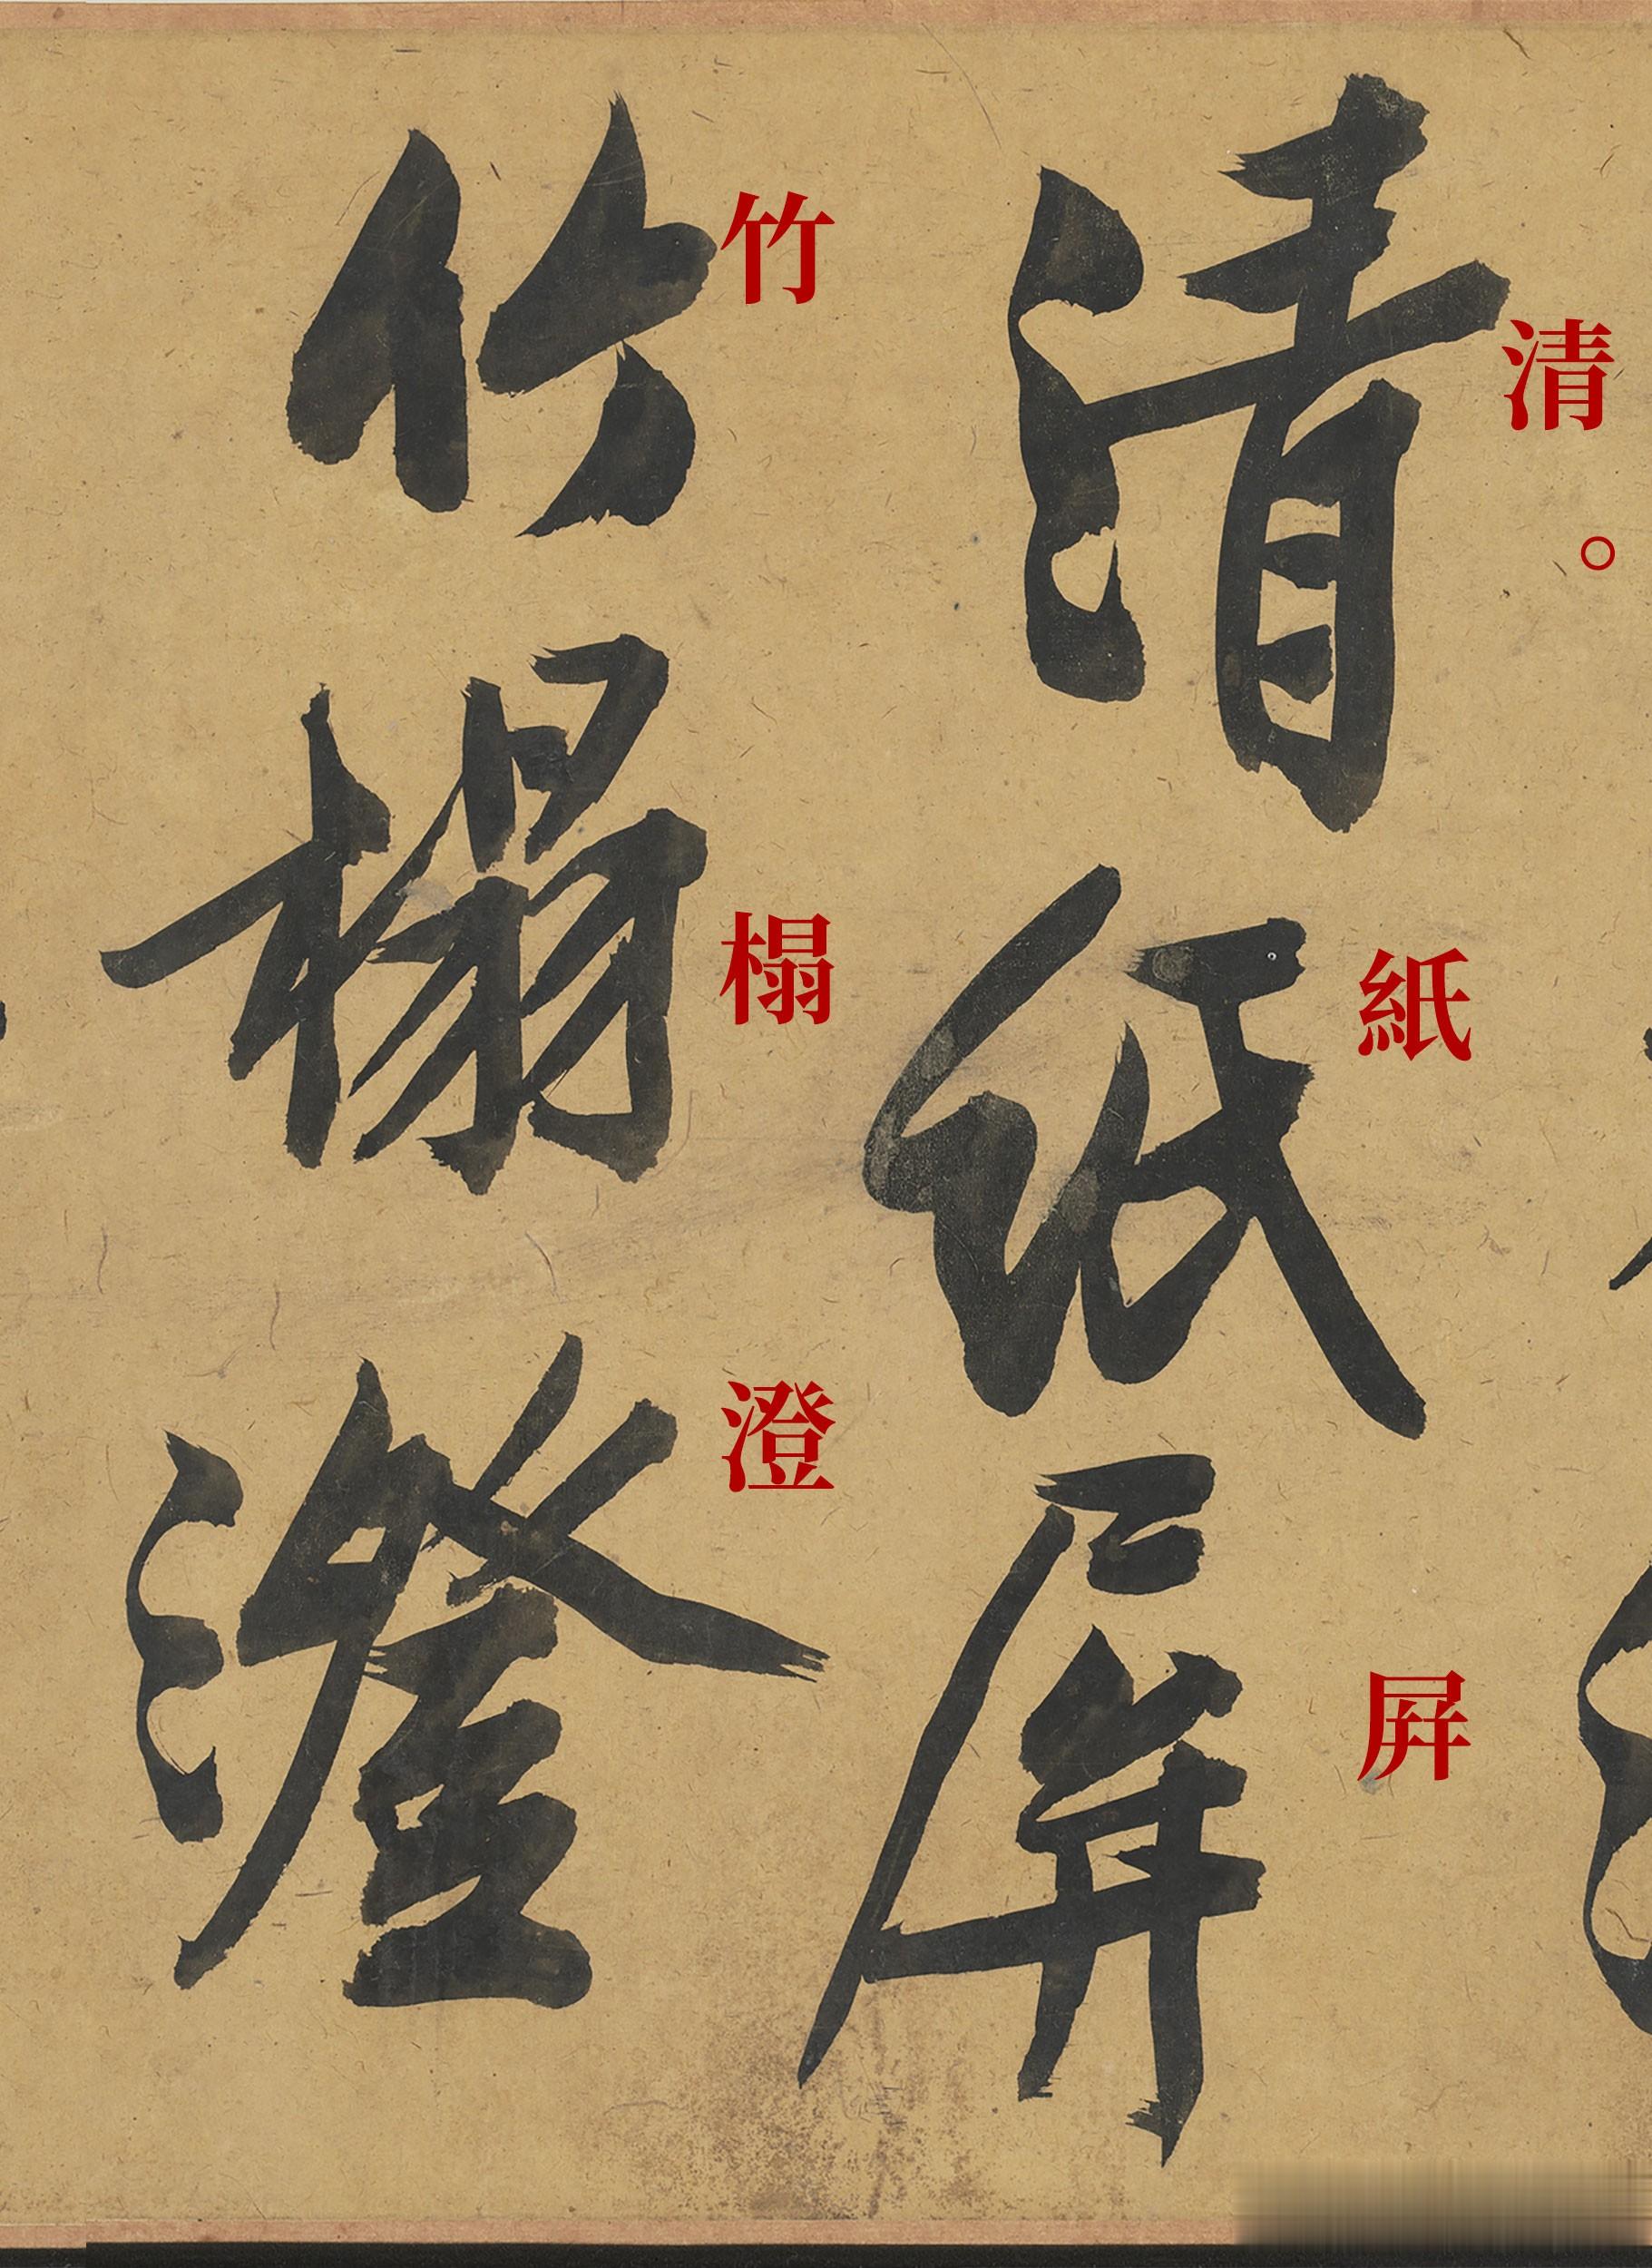 清。紙屏
竹榻澄